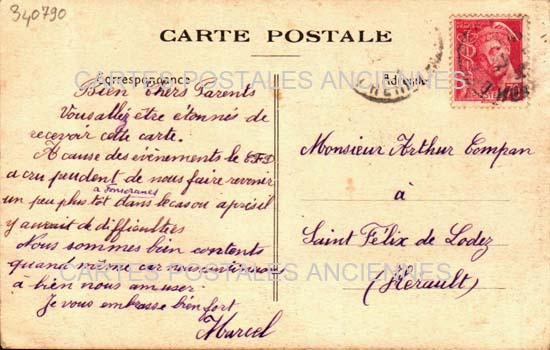 340790
CARTE POSTALE
Correspondance
Adresse
CARTES POSTALES ANCIENNES
Bien chers Parents
Vous allez être étonnés de
recevoir cette carte.
A cause des évènements le
a cru prudent de nous faire revenir
a
un peu plus tôt dans le cas ou après il
y aurait de difficultées
Nous sommes bien contents
quand même car nous
a bien nous amuser
Je vous embrasse bien fort
Marcel
Monsieur Arthur Compan
à
Saint Félix de Lodez
(Hérault)
CARTES POSTALES ANCIENNES